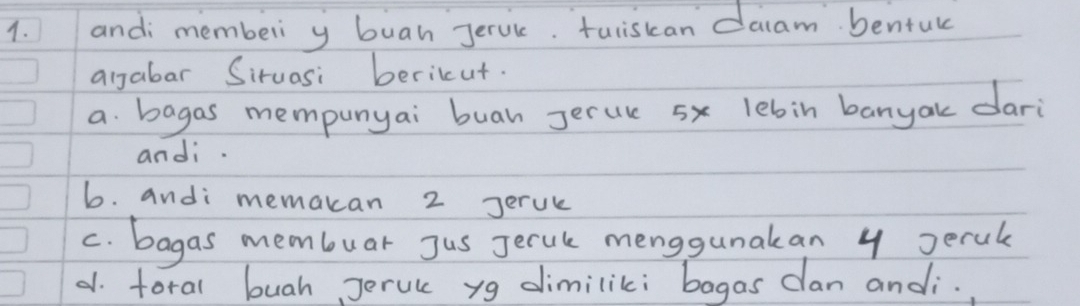 1. andi membeli y buah Jeruk. tuliskan dalam bentuk
aljabar Situasi berikut.
a. bagas mempunyai buah Jeruk 5x lebih banyak dari
andi.
b. andi memakan 2 Jeruk
c. bagas membuat Jus Jeruk menggunakan 4 Jeruk
d. total buah Jeruk yg dimiliki bagas dan andi.